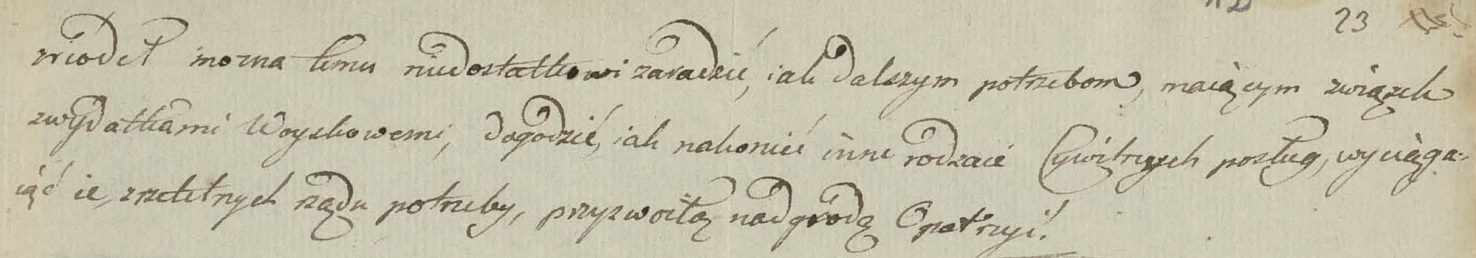 23
zriódeł mozna temu niedostatkowi zaradzić, iak dalszym potrzebom, maiącym związek
zwydatkami Woyskowemi, dogodzić, iak nakonieć inne rodzaie Cywilnych posług, wyciąga-
iąć ie, zrzetelnych rządu potrzeby, przyzwoitą nadgrodą Opatrzyć.